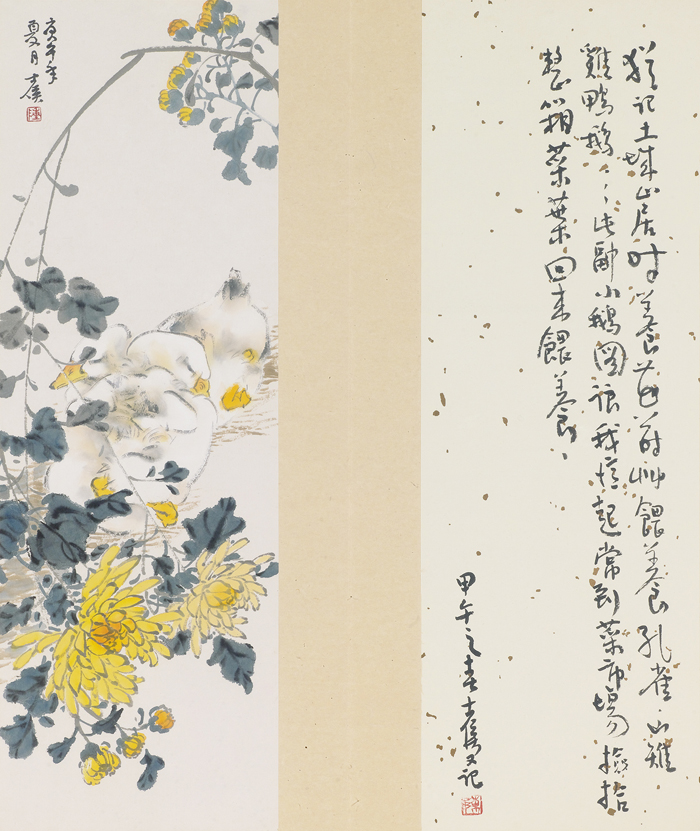 猶記土城山居時養花蒔艸餵養孔雀、山雉
雞鴨鵝、、、此副小鵝圖讓我憶起常到菜市場撿拾
整箱菜葉回來餵養、
甲午之春士侯又記
庚午年
夏月士侯